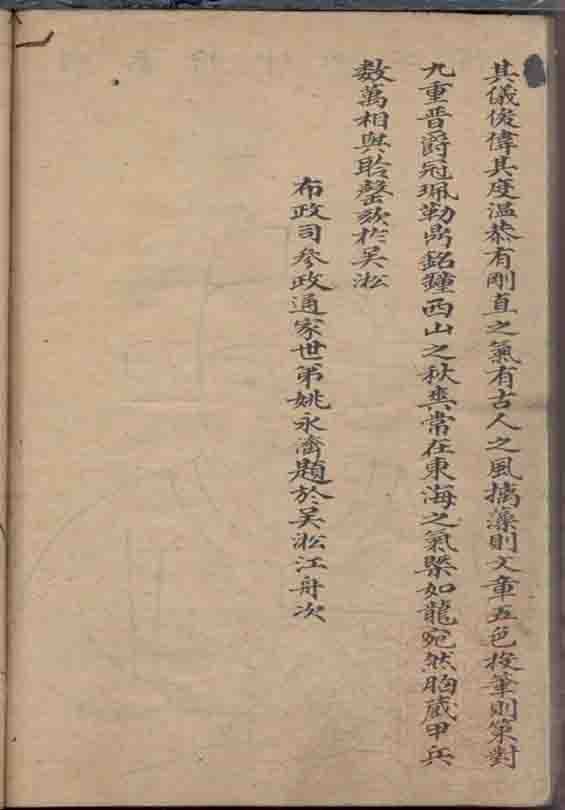 其儀俊偉其度温恭有剛直之氣有古人之風摛藻則文章五色投筆則策對
九重晋爵冠珮勒鼎銘鐘西山之秋爽常在東海之氣槩如龍宛然胸藏甲兵
数萬相與聆謦欬於吴淞
布政司叅政通家世弟姚永濟題於吴淞江舟次